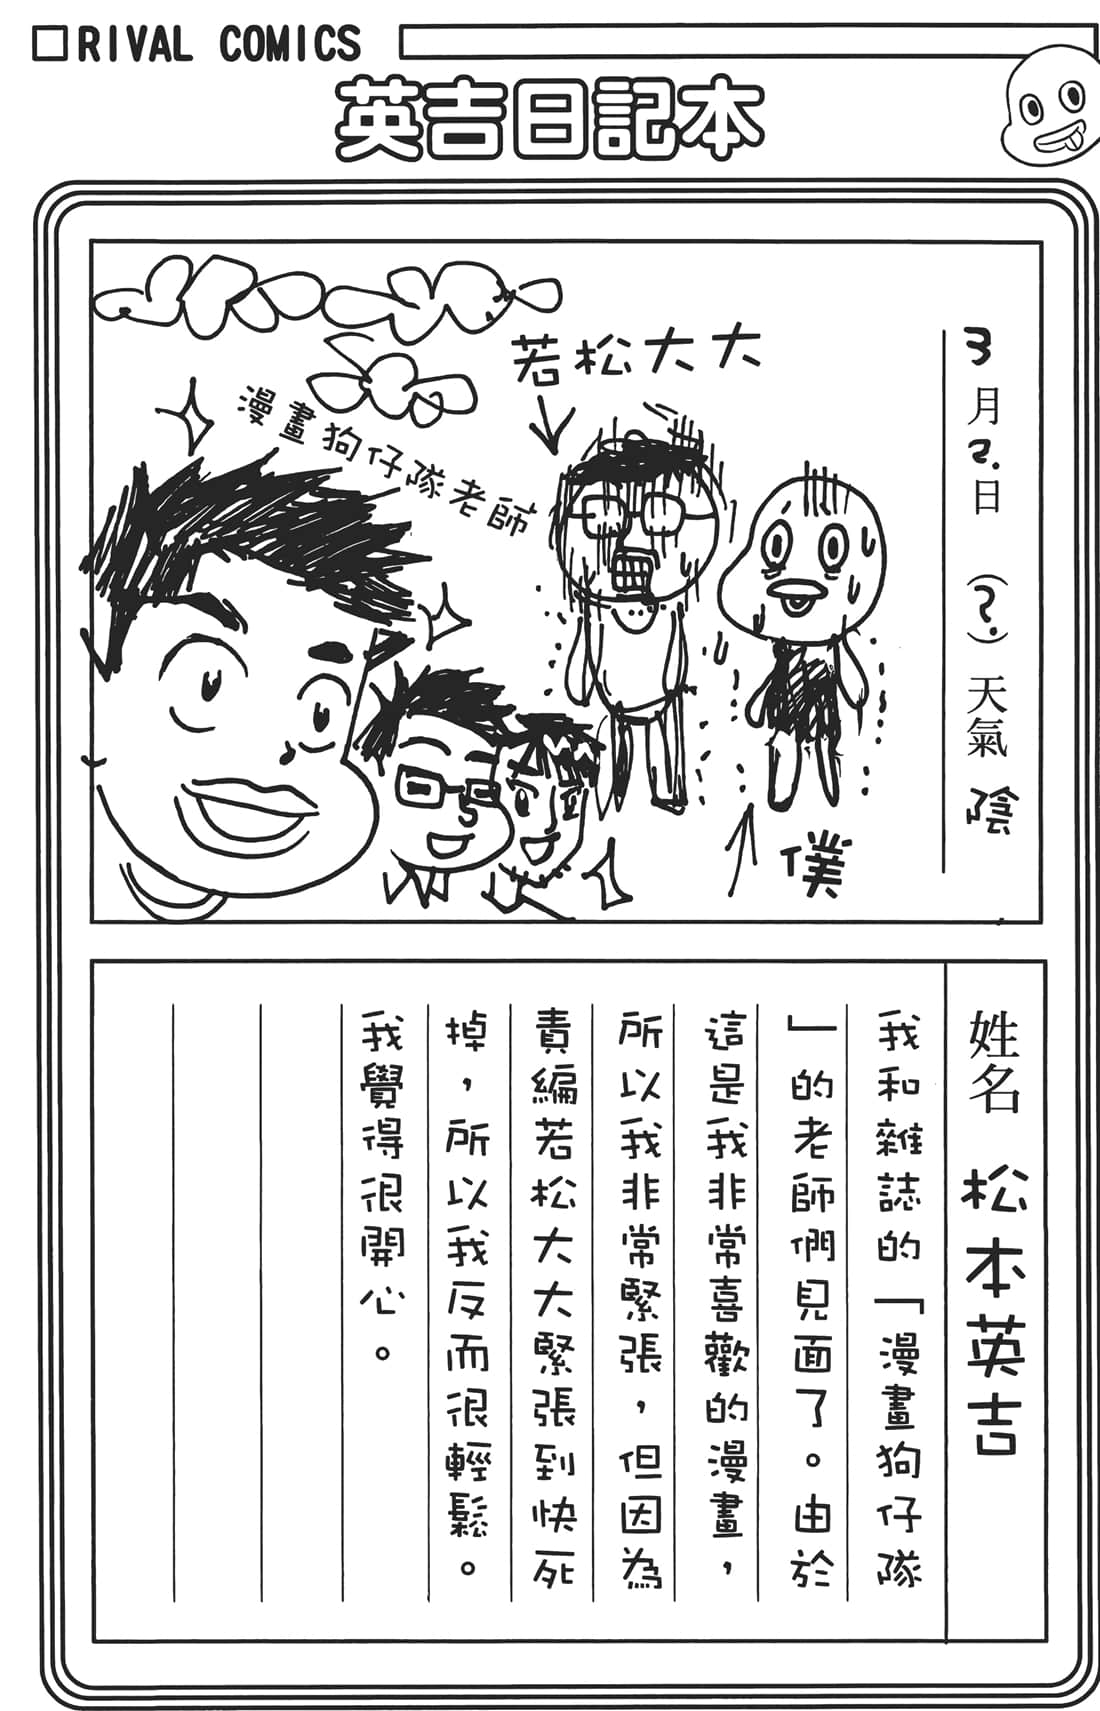 □RIVAL COMICS
英吉日記本
3月2.日 (?.) 天氣 陰
若松大大
漫畫狗仔隊老師
僕
姓名 松本英吉
我和雜誌的「漫畫狗仔隊
」的老師們見面了。由於
這是我非常喜歡的漫畫，
所以我非常緊張，但因為
責編若松大大緊張到快死
掉，所以我反而很輕鬆。
我覺得很開心。